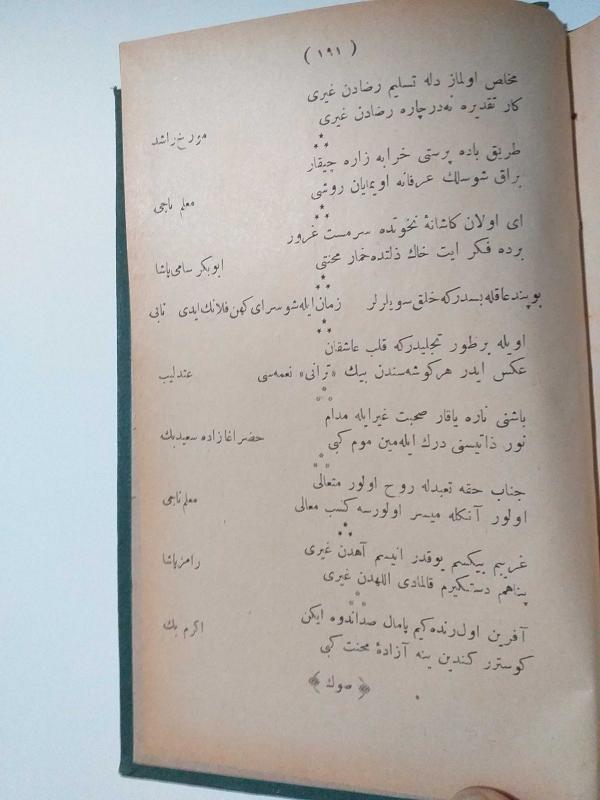 ( ١٩١ )
مخلص اولماز دله تسليم رضادن غيرى
كار تقديره نه در چاره رضادن غيرى
مؤرخ راشد
طريق باده پرستى خرابه زاره چيقار
براق شو سالك عرفانه اويمايان روشى
معلم ناجى
اى اولان كاشانهٔ نخوتده سرمست غرور
برده فكر ايت خاك ذلتده خمار محنتى
ابوبكر سامى پاشا
بو پند عاقله بسدر كه خلق سويلرلر زمان ايله شو سراى كهن فلانك ايدى نابى
اويله بر طور تجليدر كه قلب عاشقان
عكس ايدر هر كوشه سندن بيك «ترانى» نغمه سى
عندليب
باشنى ناره ياقار صحبت غير ايله مدام
نور ذاتيسنى درك ايله مين موم كبى
خضر اغا زاده سعيد بك
جناب حقه تعبدله روح اولور متعالى
اولور آنكله ميسر اولورسه كسب معالى
معلم ناجى
غريبم بيكسم يوقدر انيسم آهدن غيرى
پناهم دستكيرم قالمادى اللهدن غيرى
رامز پاشا
آفرين اول رنده كيم پامال صد اندوه ايكن
كوسترر كندين ينه آزادهٔ محنت كبى
اكرم بك
﴿ صوك ﴾